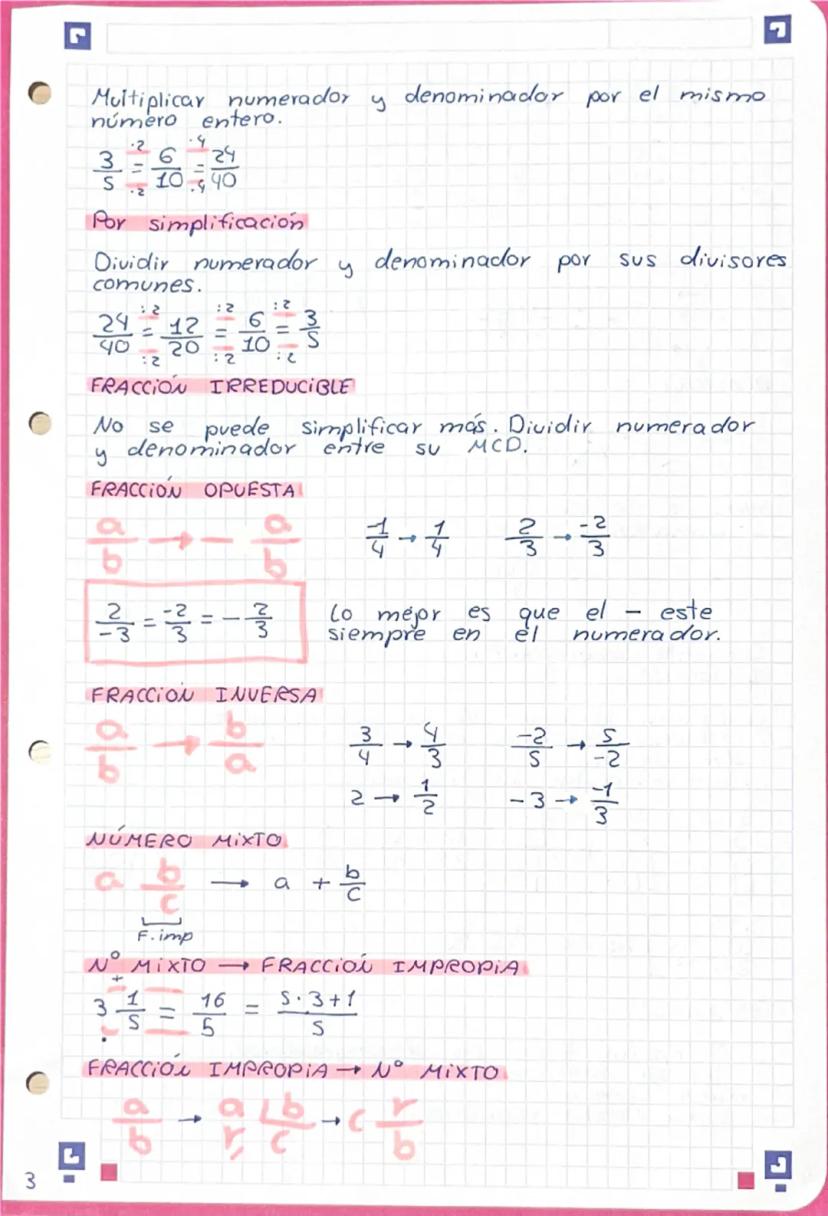 Multiplicar numerador y denominador por el mismo
número entero.
·2 ·4
3/5 = 6/10 = 24/40
·2 ·4
Por simplificación
Dividir numerador y denominador por sus divisores
comunes.
:2 :2 :2
24/40 = 12/20 = 6/10 = 3/5
:2 :2 :2
FRACCIÓN IRREDUCIBLE
No se puede simplificar más. Dividir numerador
y denominador entre su MCD.
FRACCIÓN OPUESTA
a/b → - a/b -1/4 → 1/4 2/3 → -2/3
2/-3 = -2/3 = - 2/3 Lo mejor es que el - este
siempre en el numerador.
FRACCIÓN INVERSA
a/b → b/a 3/4 → 4/3 -2/5 → 5/-2
2 → 1/2 -3 → -1/3
NÚMERO MIXTO
a b/c → a + b/c
F. imp
Nº MIXTO → FRACCIÓN IMPROPIA
+
3 1/5 = 16/5 = 5·3+1/5
·
FRACCIÓN IMPROPIA → Nº MIXTO
a/b → a |b → c r/b
r, c
3